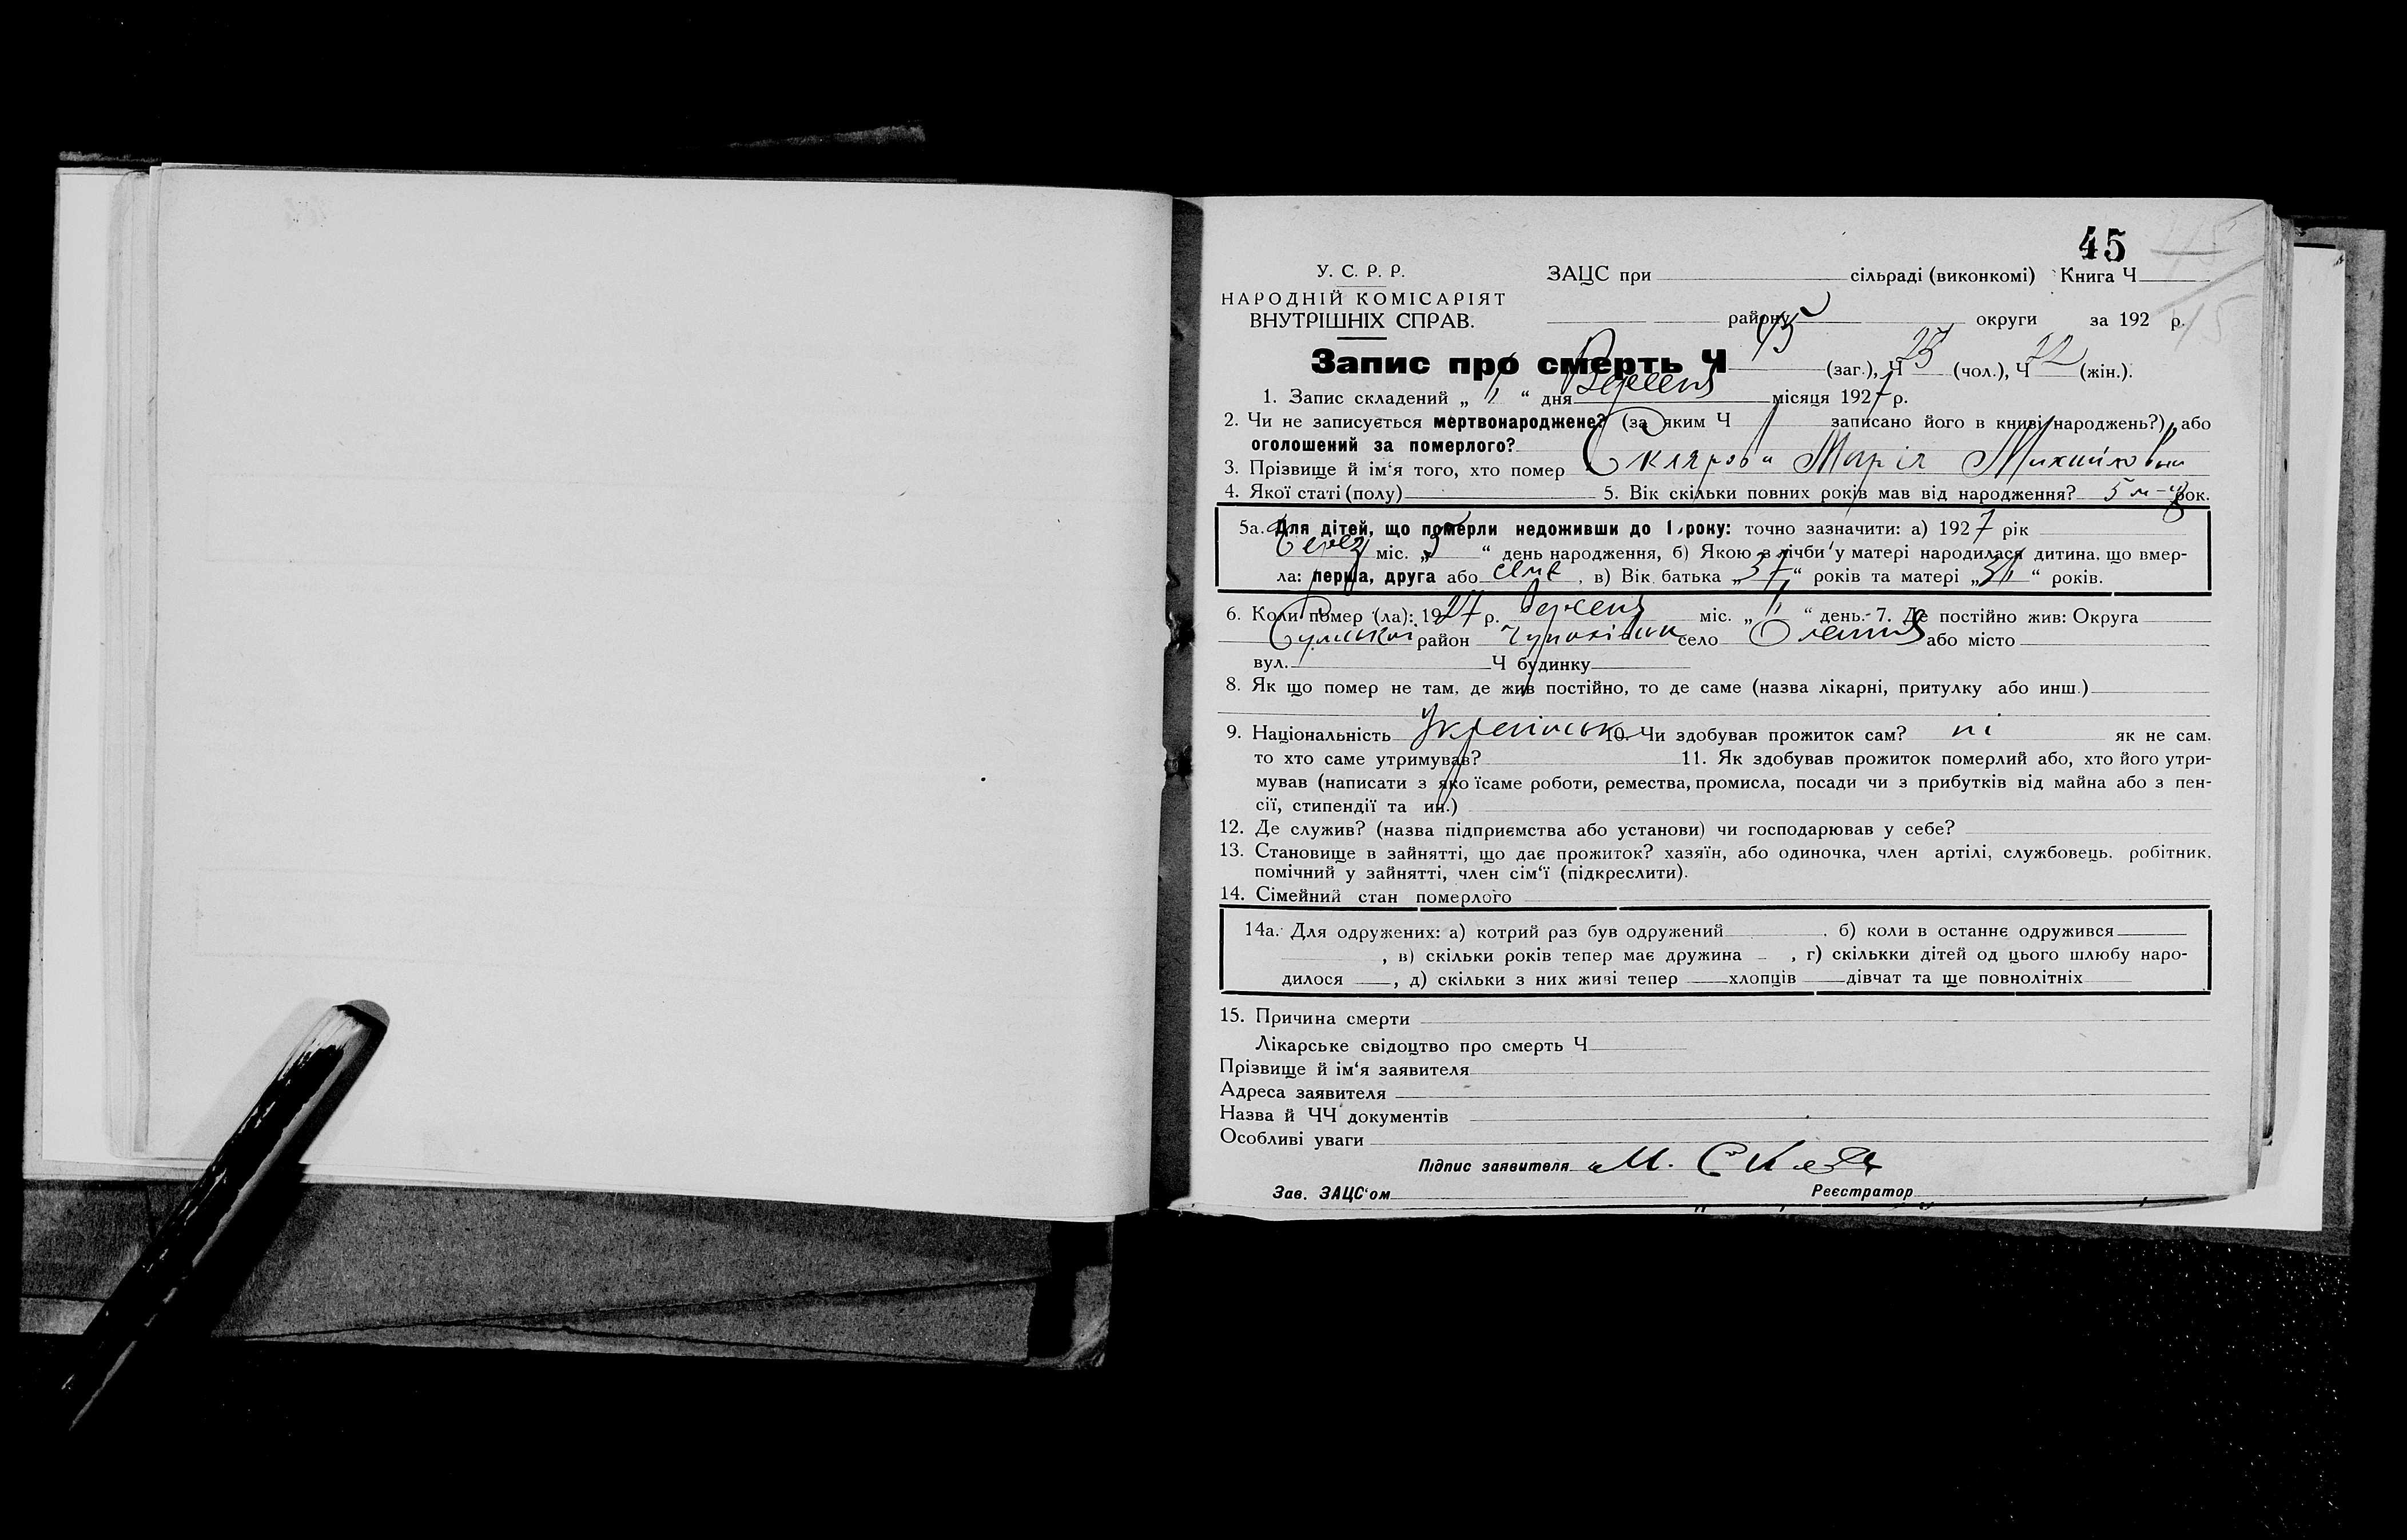 45
У. С. Р. Р.
НАРОДНІЙ КОМІСАРІЯТ
ВНУТРІШНІХ СПРАВ.
ЗАЦС при сільраді (виконкомі) Книга Ч
району округи за 192 р.
Запис про смерть Ч 45 (заг.), Ч 23 (чол.), Ч 22 (жін.).
1. Запис складений „ “ дня Вересня місяця 1927 р.
2. Чи не записується мертвонароджене? (за яким Ч записано його в книзі народжень?) або
оголошений за померлого?
3. Прізвище й ім‘я того, хто помер Склярова Марія Михайловна
4. Якої статі (полу) 5. Вік скільки повних років мав від народження? 5 рок.
5а. Для дітей, що померли недоживши до 1 року: точно зазначити: а) 1927 рік
міс. „ “ день народження, б) Якою з лічби у матері народилася дитина, що вмер-
ла: перша, друга або , в) Вік батька „37“ років та матері „ “ років.
6. Коли помер (ла): 1927 р. Вересня міс. „ “ день. 7. Де постійно жив: Округа
Сумськой район село або місто
вул. Ч будинку
8. Як що помер не там, де жив постійно, то де саме (назва лікарні, притулку або инш.)
9. Національність 10. Чи здобував прожиток сам? ні як не сам,
то хто саме утримував? 11. Як здобував прожиток померлий або, хто його утри-
мував (написати з яко їсаме роботи, ремества, промисла, посади чи з прибутків від майна або з пен-
сії, стипендії та ин.)
12. Де служив? (назва підприємства або установи) чи господарював у себе?
13. Становище в зайнятті, що дає прожиток? хазяїн, або одиночка, член артілі, службовець, робітник,
помічний у зайнятті, член сім‘ї (підкреслити).
14. Сімейний стан померлого
14а. Для одружених: а) котрий раз був одружений , б) коли в останнє одружився
, в) скільки років тепер має дружина , г) скількки дітей од цього шлюбу наро-
дилося , д) скільки з них живі тепер хлопців дівчат та ще повнолітніх
15. Причина смерти
Лікарське свідоцтво про смерть Ч
Прізвище й ім‘я заявителя
Адреса заявителя
Назва й ЧЧ документів
Особливі уваги
Підпис заявителя М.
Зав. ЗАЦС‘ом Реєстратор